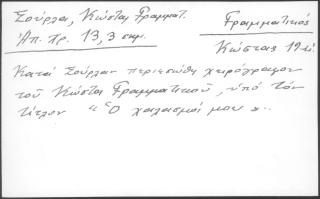 Σούρλα, Κώστας Γραμματ.
Ἀπ. Πρ. 13, 3 σημ.
Γραμματικός
Κώστας 19
Κατά Σούρλαν περιεσώθη χειρόγραφον
τοῦ Κώστα Γραμματικοῦ, ὑπό τόν
τίτλον "Ὁ χαλασμός μου"..